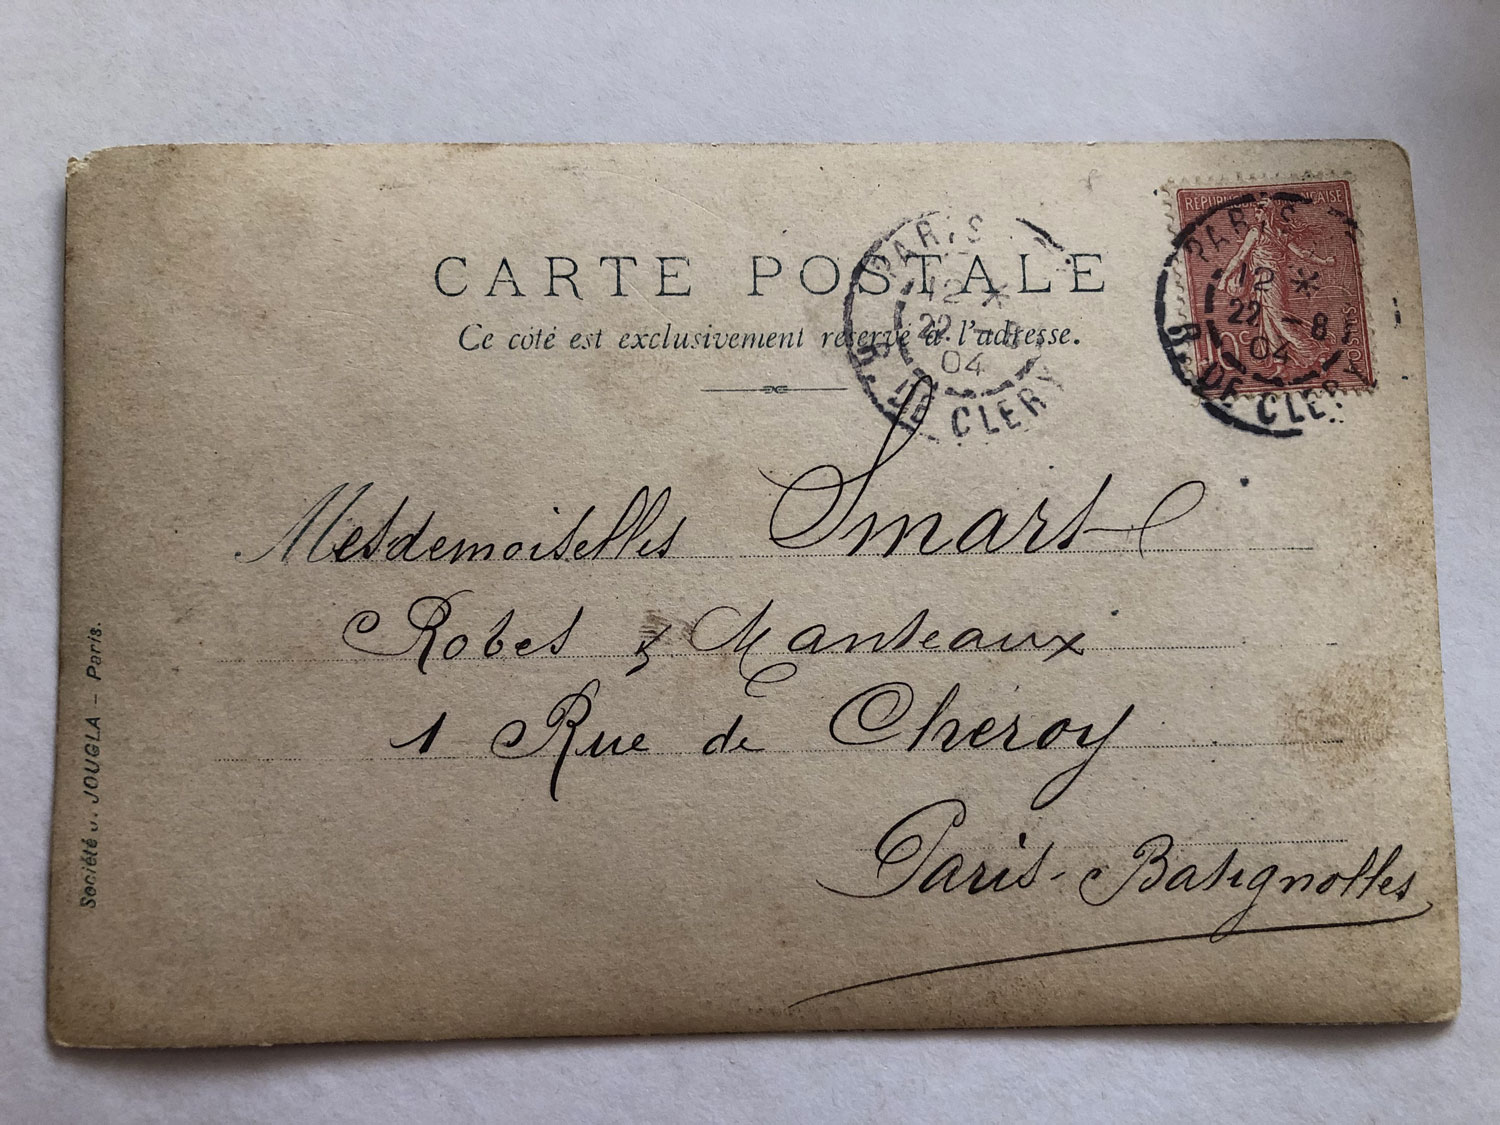 CARTE POSTALE
Ce côté est exclusivement réservé à l'adresse.
PARIS
12 *
22 -8
04
R. DE CLERY
RÉPUBLIQUE FRANÇAISE
10c
POSTES
PARIS
12 *
22 -8
04
R. DE CLERY
Mesdemoiselles Smart
Robes & Manteaux
1 Rue de Cheroy
Paris-Batignolles
Société J. JOUGLA – Paris.